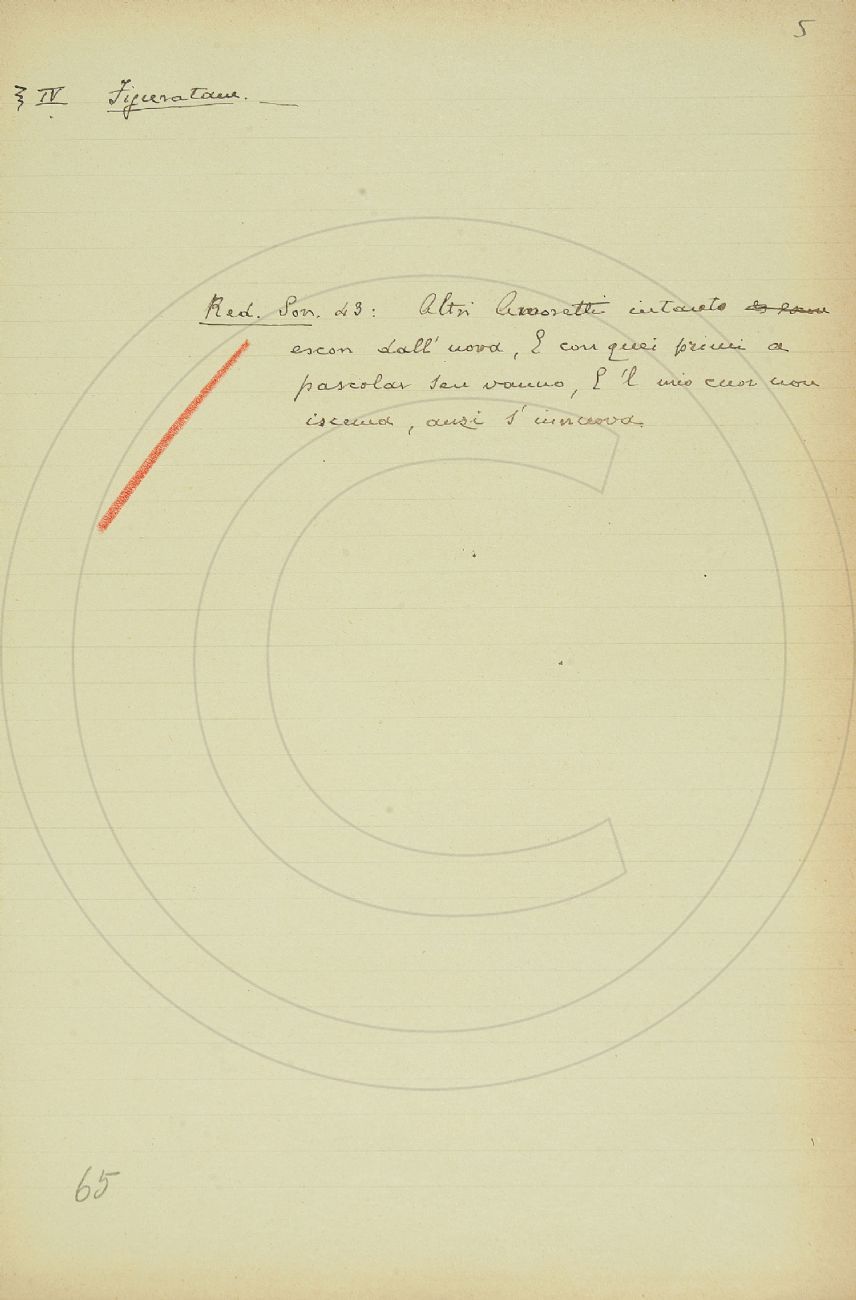 5
§ IV Figuratam. —
Red. Son. 43: Altri Amoretti intanto
escon dall' uova, E con quei primi a
pascolar sen vanno, E 'l mio cuor non
iscema, anzi s' innuova.
65